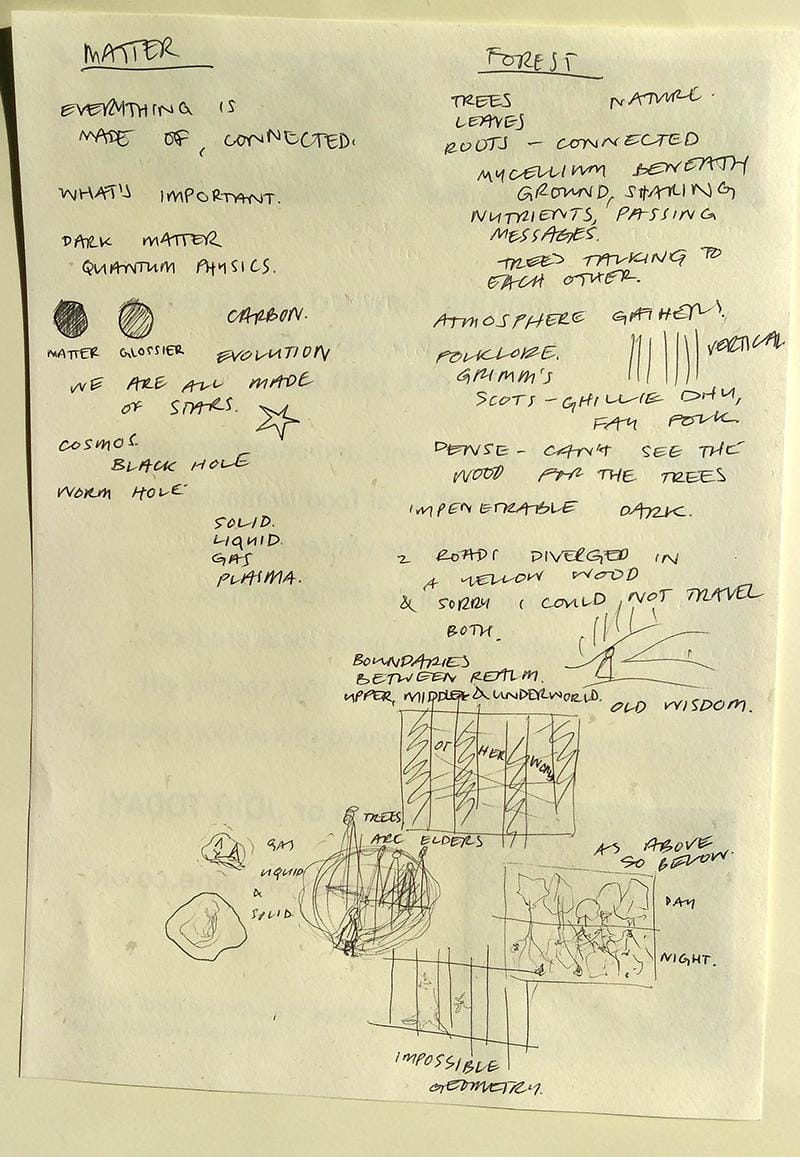 MATTER
EVERYTHING IS
MADE OF, CONNECTED.
WHAT'S IMPORTANT.
DARK MATTER
QUANTUM PHYSICS.
CARBON.
MATTER GLOSSIER EVOLUTION
WE ARE ALL MADE
OF STARS.
COSMOS.
BLACK HOLE
WORM HOLE
SOLID.
LIQUID
GAS
PLASMA.
FOREST
TREES NATURE.
LEAVES
ROOTS – CONNECTED
MYCELLIUM BENEATH
GROUND, SHARING
NUTRIENTS, PASSING
MESSAGES.
TREES TALKING TO
EACH OTHER.
ATMOSPHERE GATHERS.
VERTICAL
FOLKLORE.
GRIMM'S
SCOTS – GHILLIE DHU,
FAY FOLK.
DENSE – CAN'T SEE THE
WOOD FOR THE TREES
IMPENETRABLE DARK.
2 ROADS DIVERGED IN
A YELLOW WOOD
& SORRY I COULD NOT TRAVEL
BOTH.
BOUNDARIES
BETWEEN REALM.
UPPER, MIDDLE & UNDERWORLD.
OLD WISDOM.
OT HER WORLD
TREES
ARC ELDERS
GAS
LIQUID
&
SOLID
AS ABOVE
SO BELOW.
DAY
NIGHT.
IMPOSSIBLE
GEOMETRY.